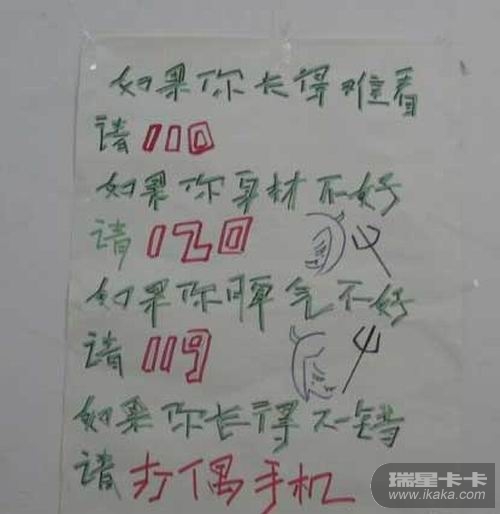 如果你长得难看
请110
如果你身材不好
请120
如果你脾气不好
请119
如果你长得不错
请打偶手机
瑞星卡卡
www.ikaka.com